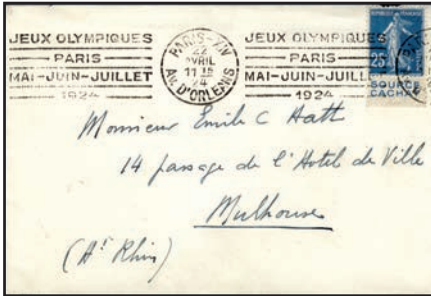 JEUX OLYMPIQUES
PARIS
MAI-JUIN-JUILLET
1924
PARIS-XIV
22
AVRIL
11 15
24
AV. D'ORLEANS
JEUX OLYMPIQUES
PARIS
MAI-JUIN-JUILLET
1924
25
SOURCE
CACHAT
Monsieur Emile C Hatt
14 passage de l'Hotel de Ville
Mulhouse
(Ht Rhin)